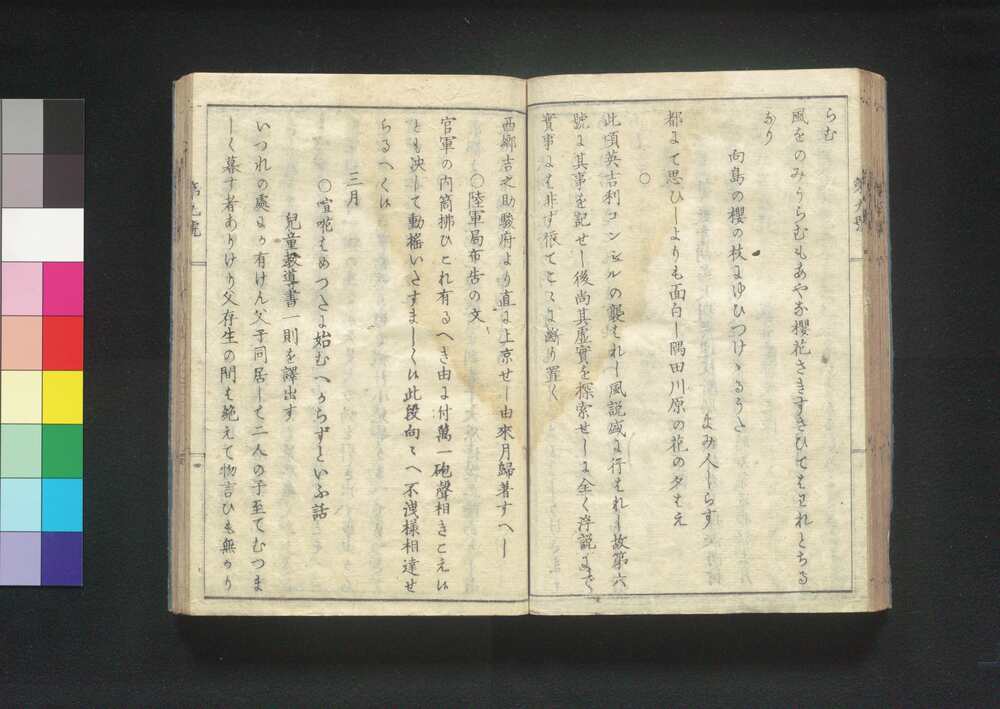 らむ
風をのみうらむもあやな櫻花さきすきひてもそれとちる
あり
向島の櫻の枝にゆひつけゝるうた
よみ人しらす
都にて思ひしよりも面白し隅田川原の花の夕はえ
○
此頃英吉利コンシュルの襲はれし風説盛に行はれし故第六
號に其事を記せし後尚其虚實を探索せしに全く浮説にて
實事には非ず依てこゝに斷り置く
西郷吉之助駿府より直に上京せし由來月歸著すへし
○陸軍局布告の文
官軍の内筒拂ひこれ有るへき由に付萬一砲聲相きこえ候
とも决して動揺いたすましく候此段向々へ不洩様相達せ
らるへく候
三月
○喧嘩はめつたに始むへからずといふ話
兒童教導書一則を譯出す
いつれの處にか有けん父子同居して二人の子至てむつま
しく暮す者ありけり父存生の間は絶えて物言ひも無かり
第九號